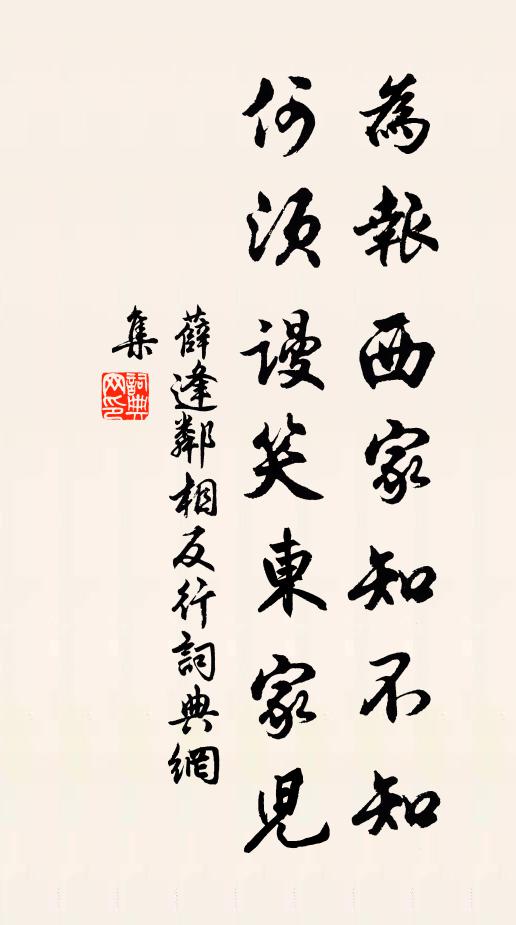 為報西家知不知
何須謾笑東家兒
薛逢鄰相反行詞典網
集
詞典
网印